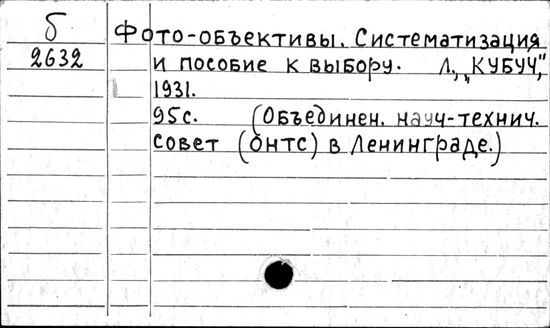 б
2632
Фото-объективы. Систематизация
и пособие к выбору. Л., „КУБУЧ,"
1931.
95с. (Объединен. науч-технич.
совет (ОНТС) в Ленинграде.)